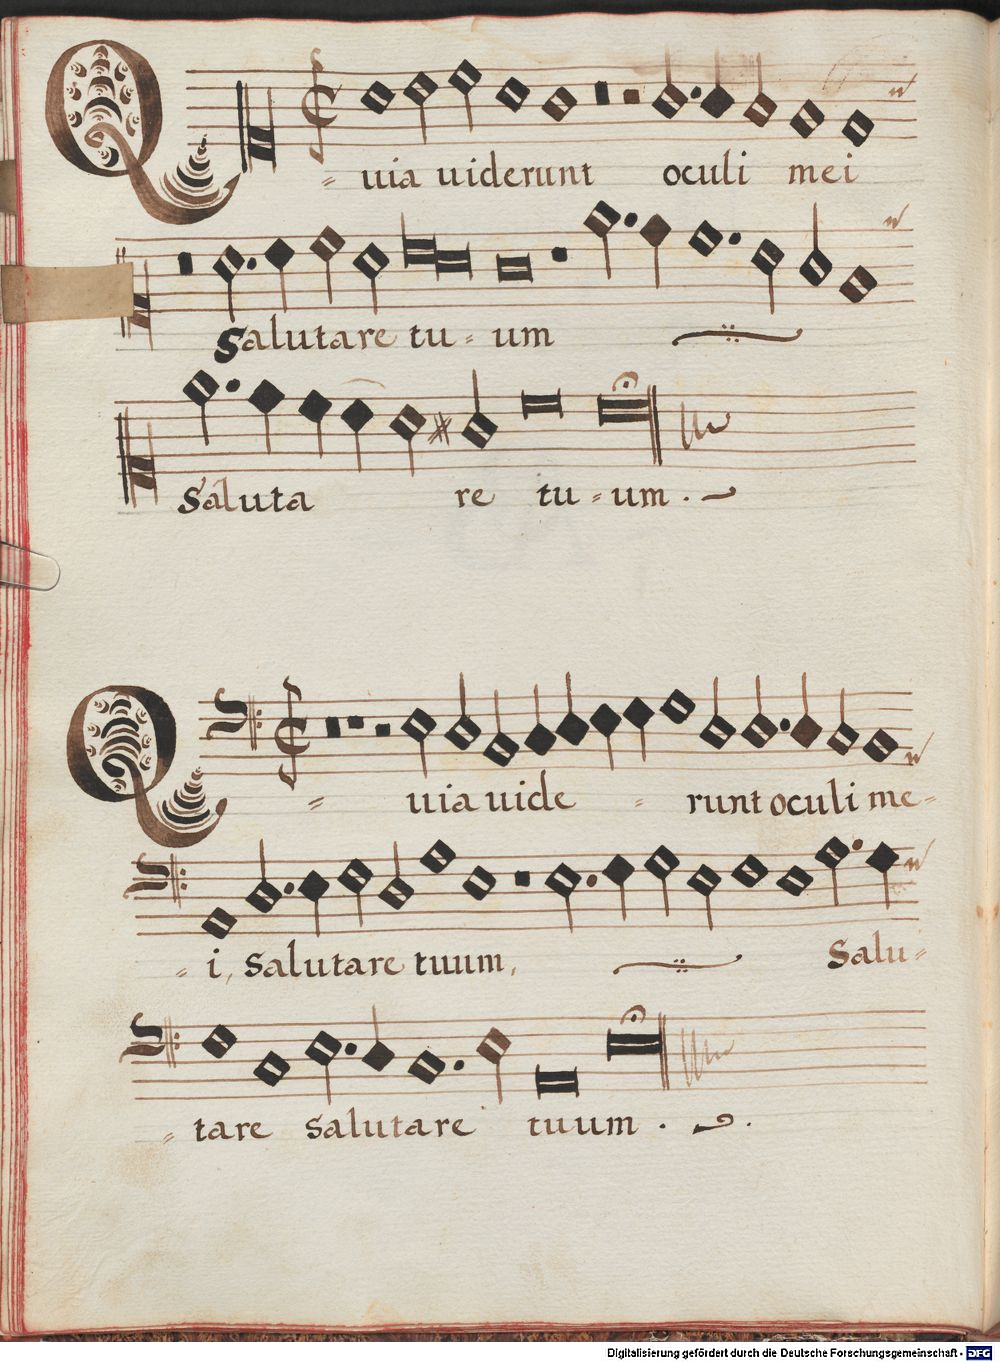 Q=uia uiderunt oculi mei
Salutare tu=um
Saluta re tu=um.
Q=uia uide=runt oculi me=
=i, Salutare tuum, Salu=
=tare Salutare tuum.
Digitalisierung gefördert durch die Deutsche Forschungsgemeinschaft - DFG